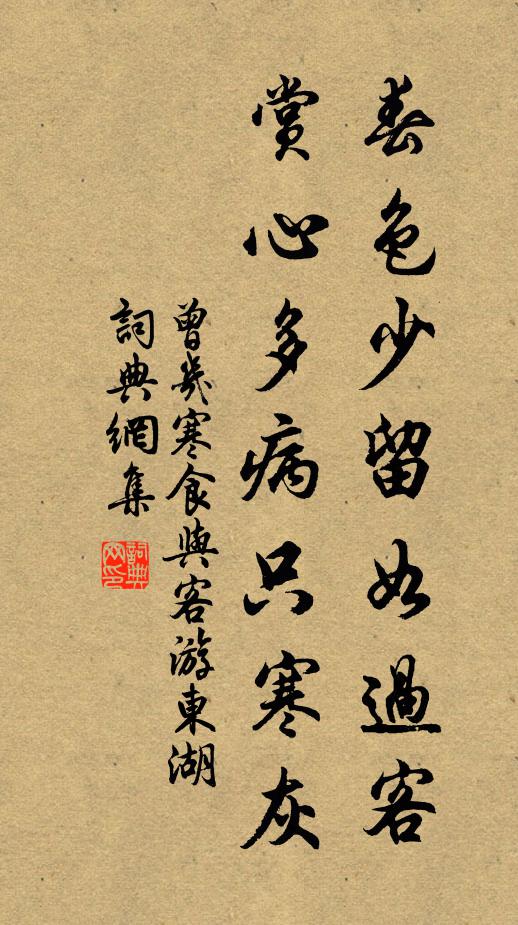 春色少留如過客
賞心多病只寒灰
曾幾寒食與客游東湖
詞典網集
詞典網印